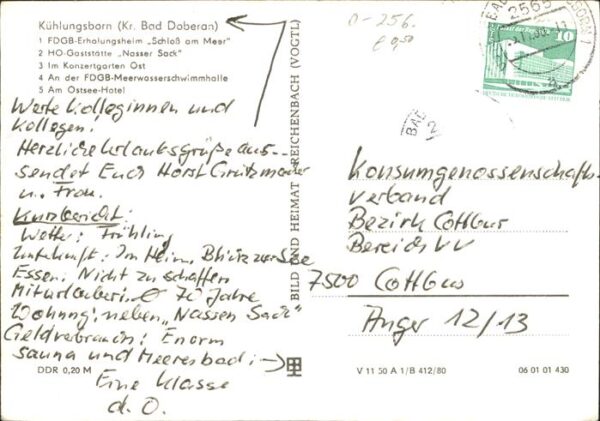 Kühlungsborn (Kr. Bad Doberan)
1 FDGB-Erholungsheim „Schloß am Meer"
2 HO-Gaststätte „Nasser Sack"
3 Im Konzertgarten Ost
4 An der FDGB-Meerwasserschwimmhalle
5 Am Ostsee-Hotel
Werte Kolleginnen und
Kollegen.
Herzliche Urlaubsgrüße aus -
sendet Euch Horst Grützmacher
u. Frau.
Kurzbericht:
Wetter: Frühling
Unterkunft: Im Heim, Blick zur See
Essen: Nicht zu schaffen
Miturlauber: Ø 70 Jahre
Wohnung: neben „Nassen Sack"
Geldverbrauch: Enorm
Sauna und Meeresbad:
Eine Klasse
d. O.
DDR 0,20 M
BILD UND HEIMAT REICHENBACH (VOGTL)
0-256.
€ 0,50
2565
BAD
2
10
Konsumgenossenschafts-
verband
Bezirk Cottbus
Bereich VV
7500 Cottbus
Anger 12/13
V 11 50 A 1/B 412/80
06 01 01 430